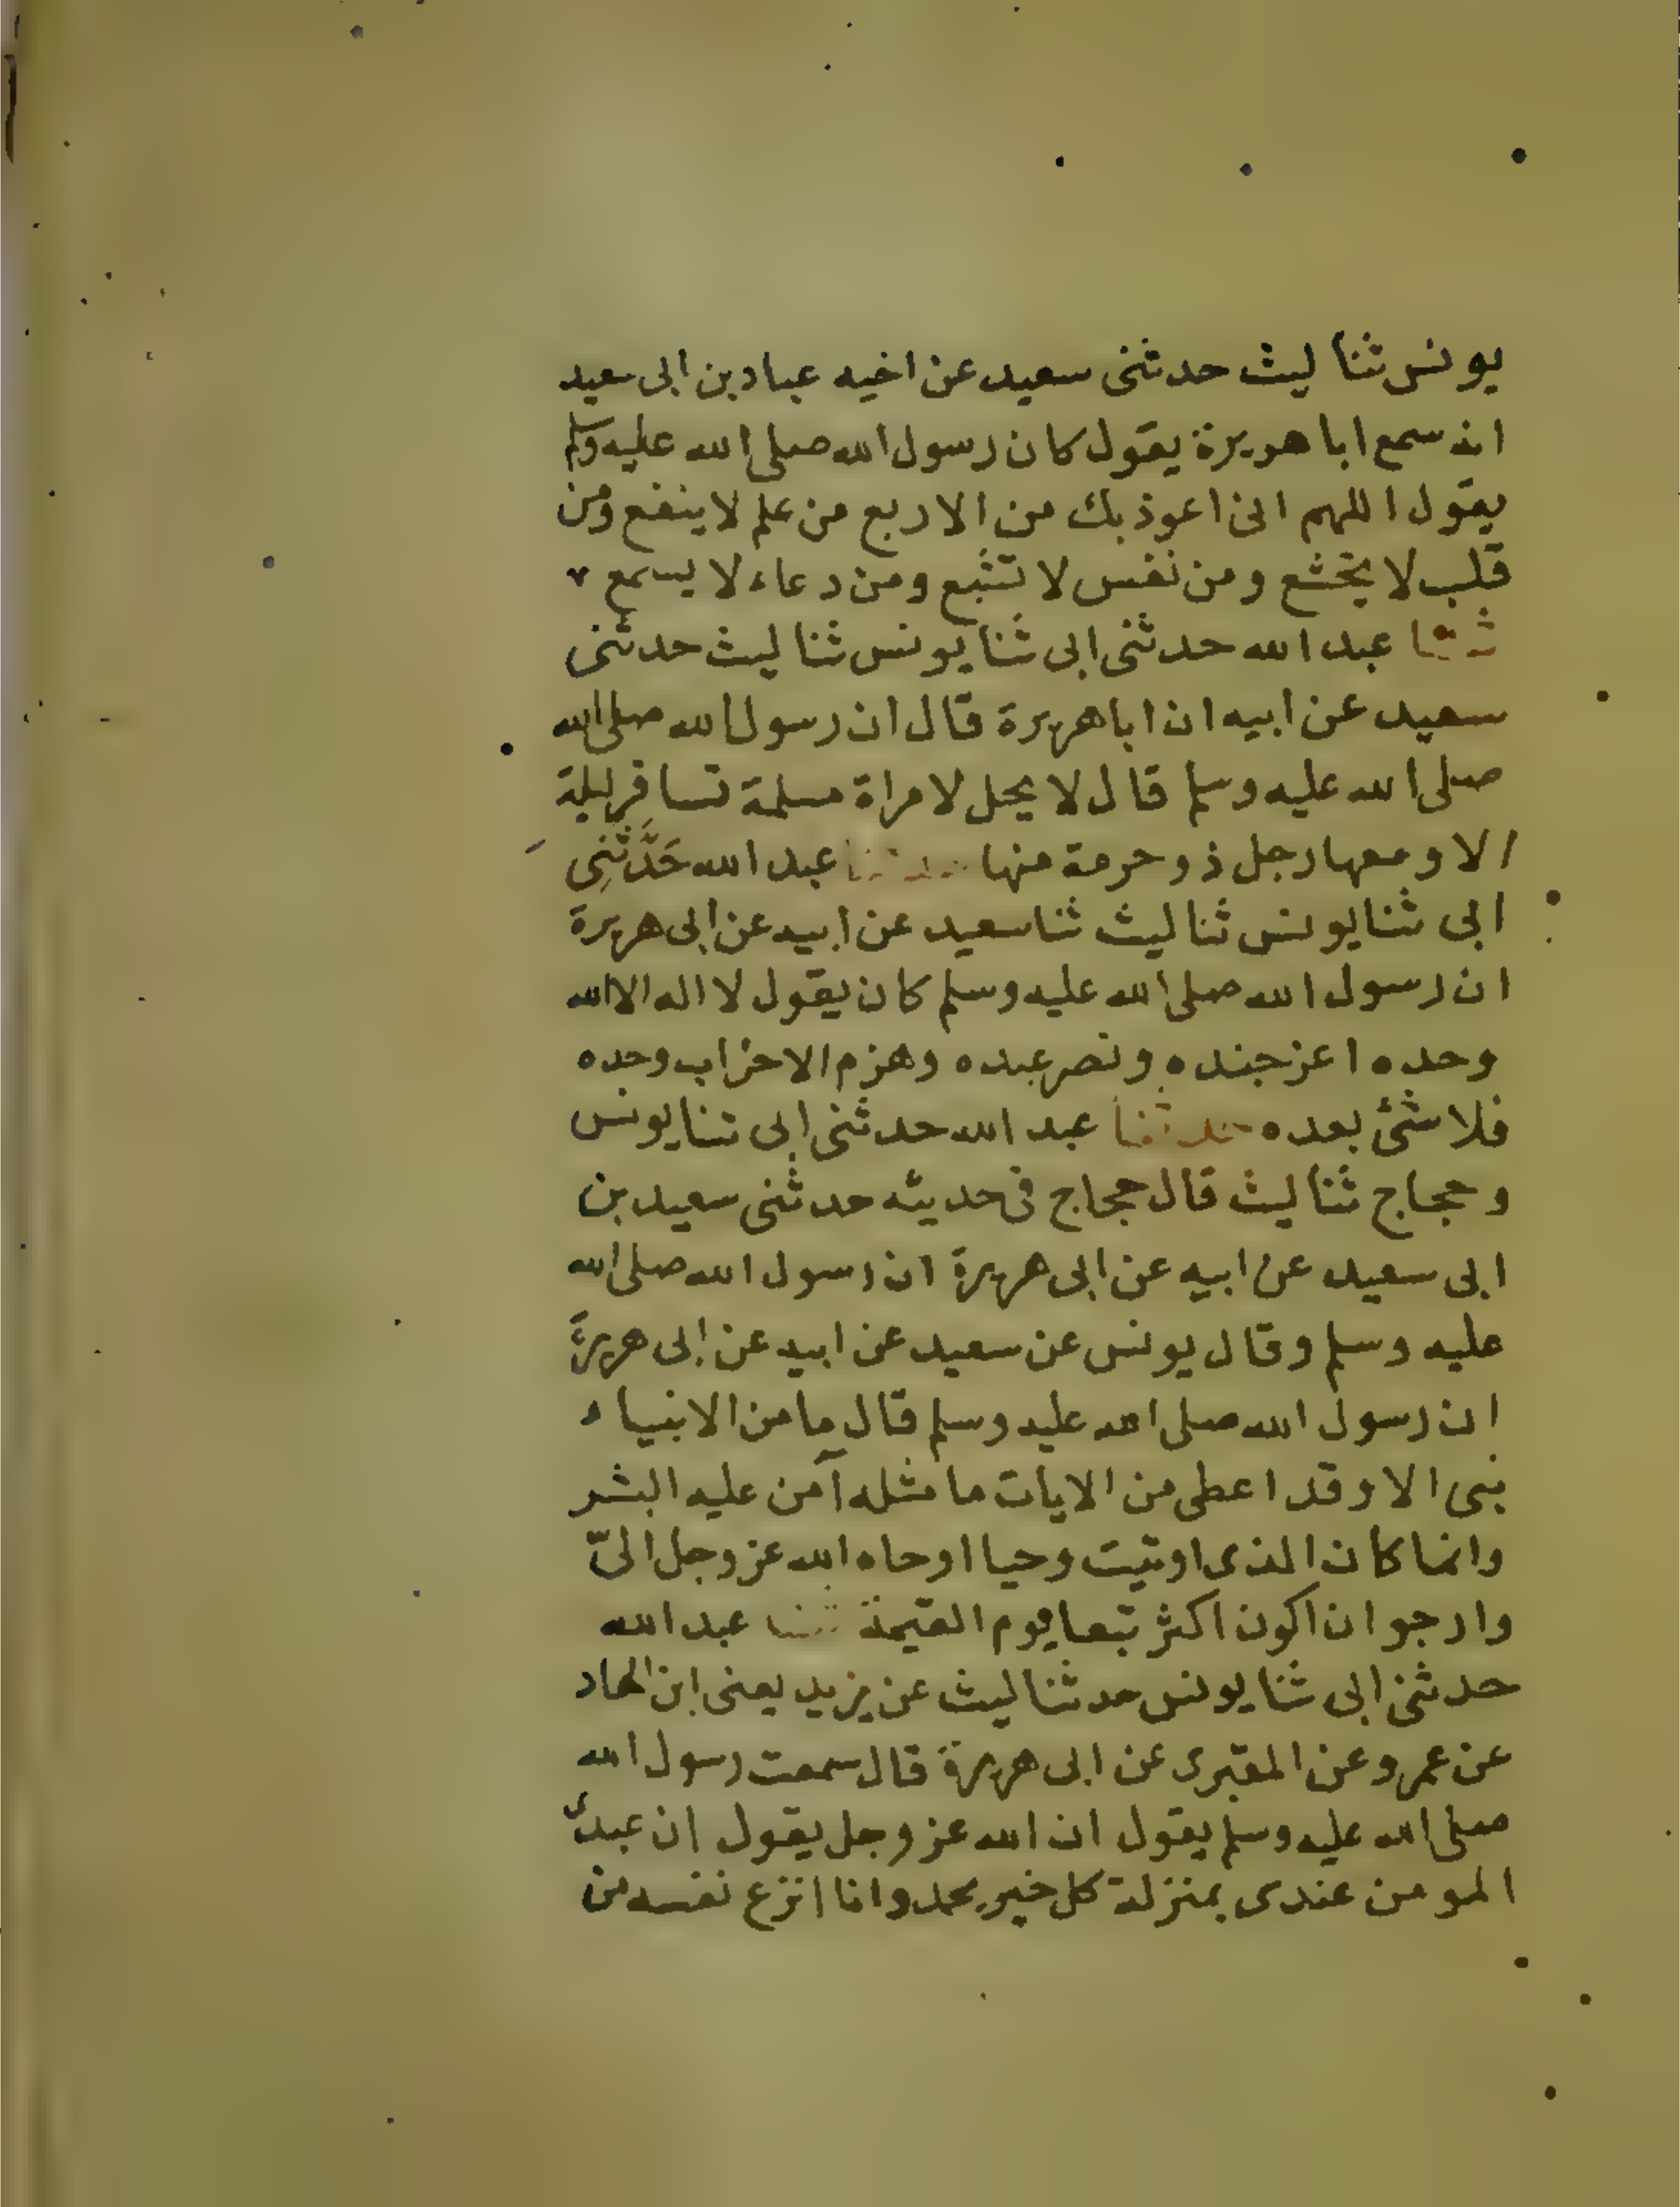 يونس ثنا ليث حدثنى سعيد عن اخيه عباد بن ابى سعيد
انه سمع ابا هريرة يقول كان رسول الله صلى الله عليه وسلم
يقول اللهم انى اعوذ بك من الاربع من علم لا ينفع ومن
قلب لا يخشع ومن نفس لا تشبع ومن دعاء لا يسمع
ثنا عبد الله حدثنى ابى ثنا يونس ثنا ليث حدثنى
سعيد عن ابيه ان ابا هريرة قال ان رسول الله صلى الله
صلى الله عليه وسلم قال لا يحل لامراة مسلمة تسافر ليلة
الا ومعها رجل ذو حرمة منها حدثنا عبد الله حَدَّثَنِى
ابى ثنا يونس ثنا ليث ثنا سعيد عن ابيه عن ابى هريرة
ان رسول الله صلى الله عليه وسلم كان يقول لا اله الا الله
وحده اعز جنده ونصر عبده وهزم الاحزاب وحده
فلا شئ بعده حدثنا عبد الله حدثنى ابى ثنا يونس
وحجاج ثنا ليث قال حجاج فى حديثه حدثنى سعيد بن
ابى سعيد عن ابيه عن ابى هريرة ان رسول الله صلى الله
عليه وسلم وقال يونس عن سعيد عن ابيه عن ابى هريرة
ان رسول الله صلى الله عليه وسلم قال ما من الانبياء
نبى الا وقد اعطى من الايات ما مثله آمن عليه البشر
وانما كان الذى اوتيت وحيا اوحاه الله عز وجل الىّ
وارجو ان اكون اكثر تبعا يوم القيمة ثنا عبد الله
حدثنى ابى ثنا يونس حدثنا ليث عن يزيد يعنى ابن الهاد
عن عمرو عن المقبرى عن ابى هريرة قال سمعت رسول الله
صلى الله عليه وسلم يقول ان الله عز وجل يقول ان عبدى
المومن عندى بمنزلة كل خير يحمد وانا انزع نفسه من